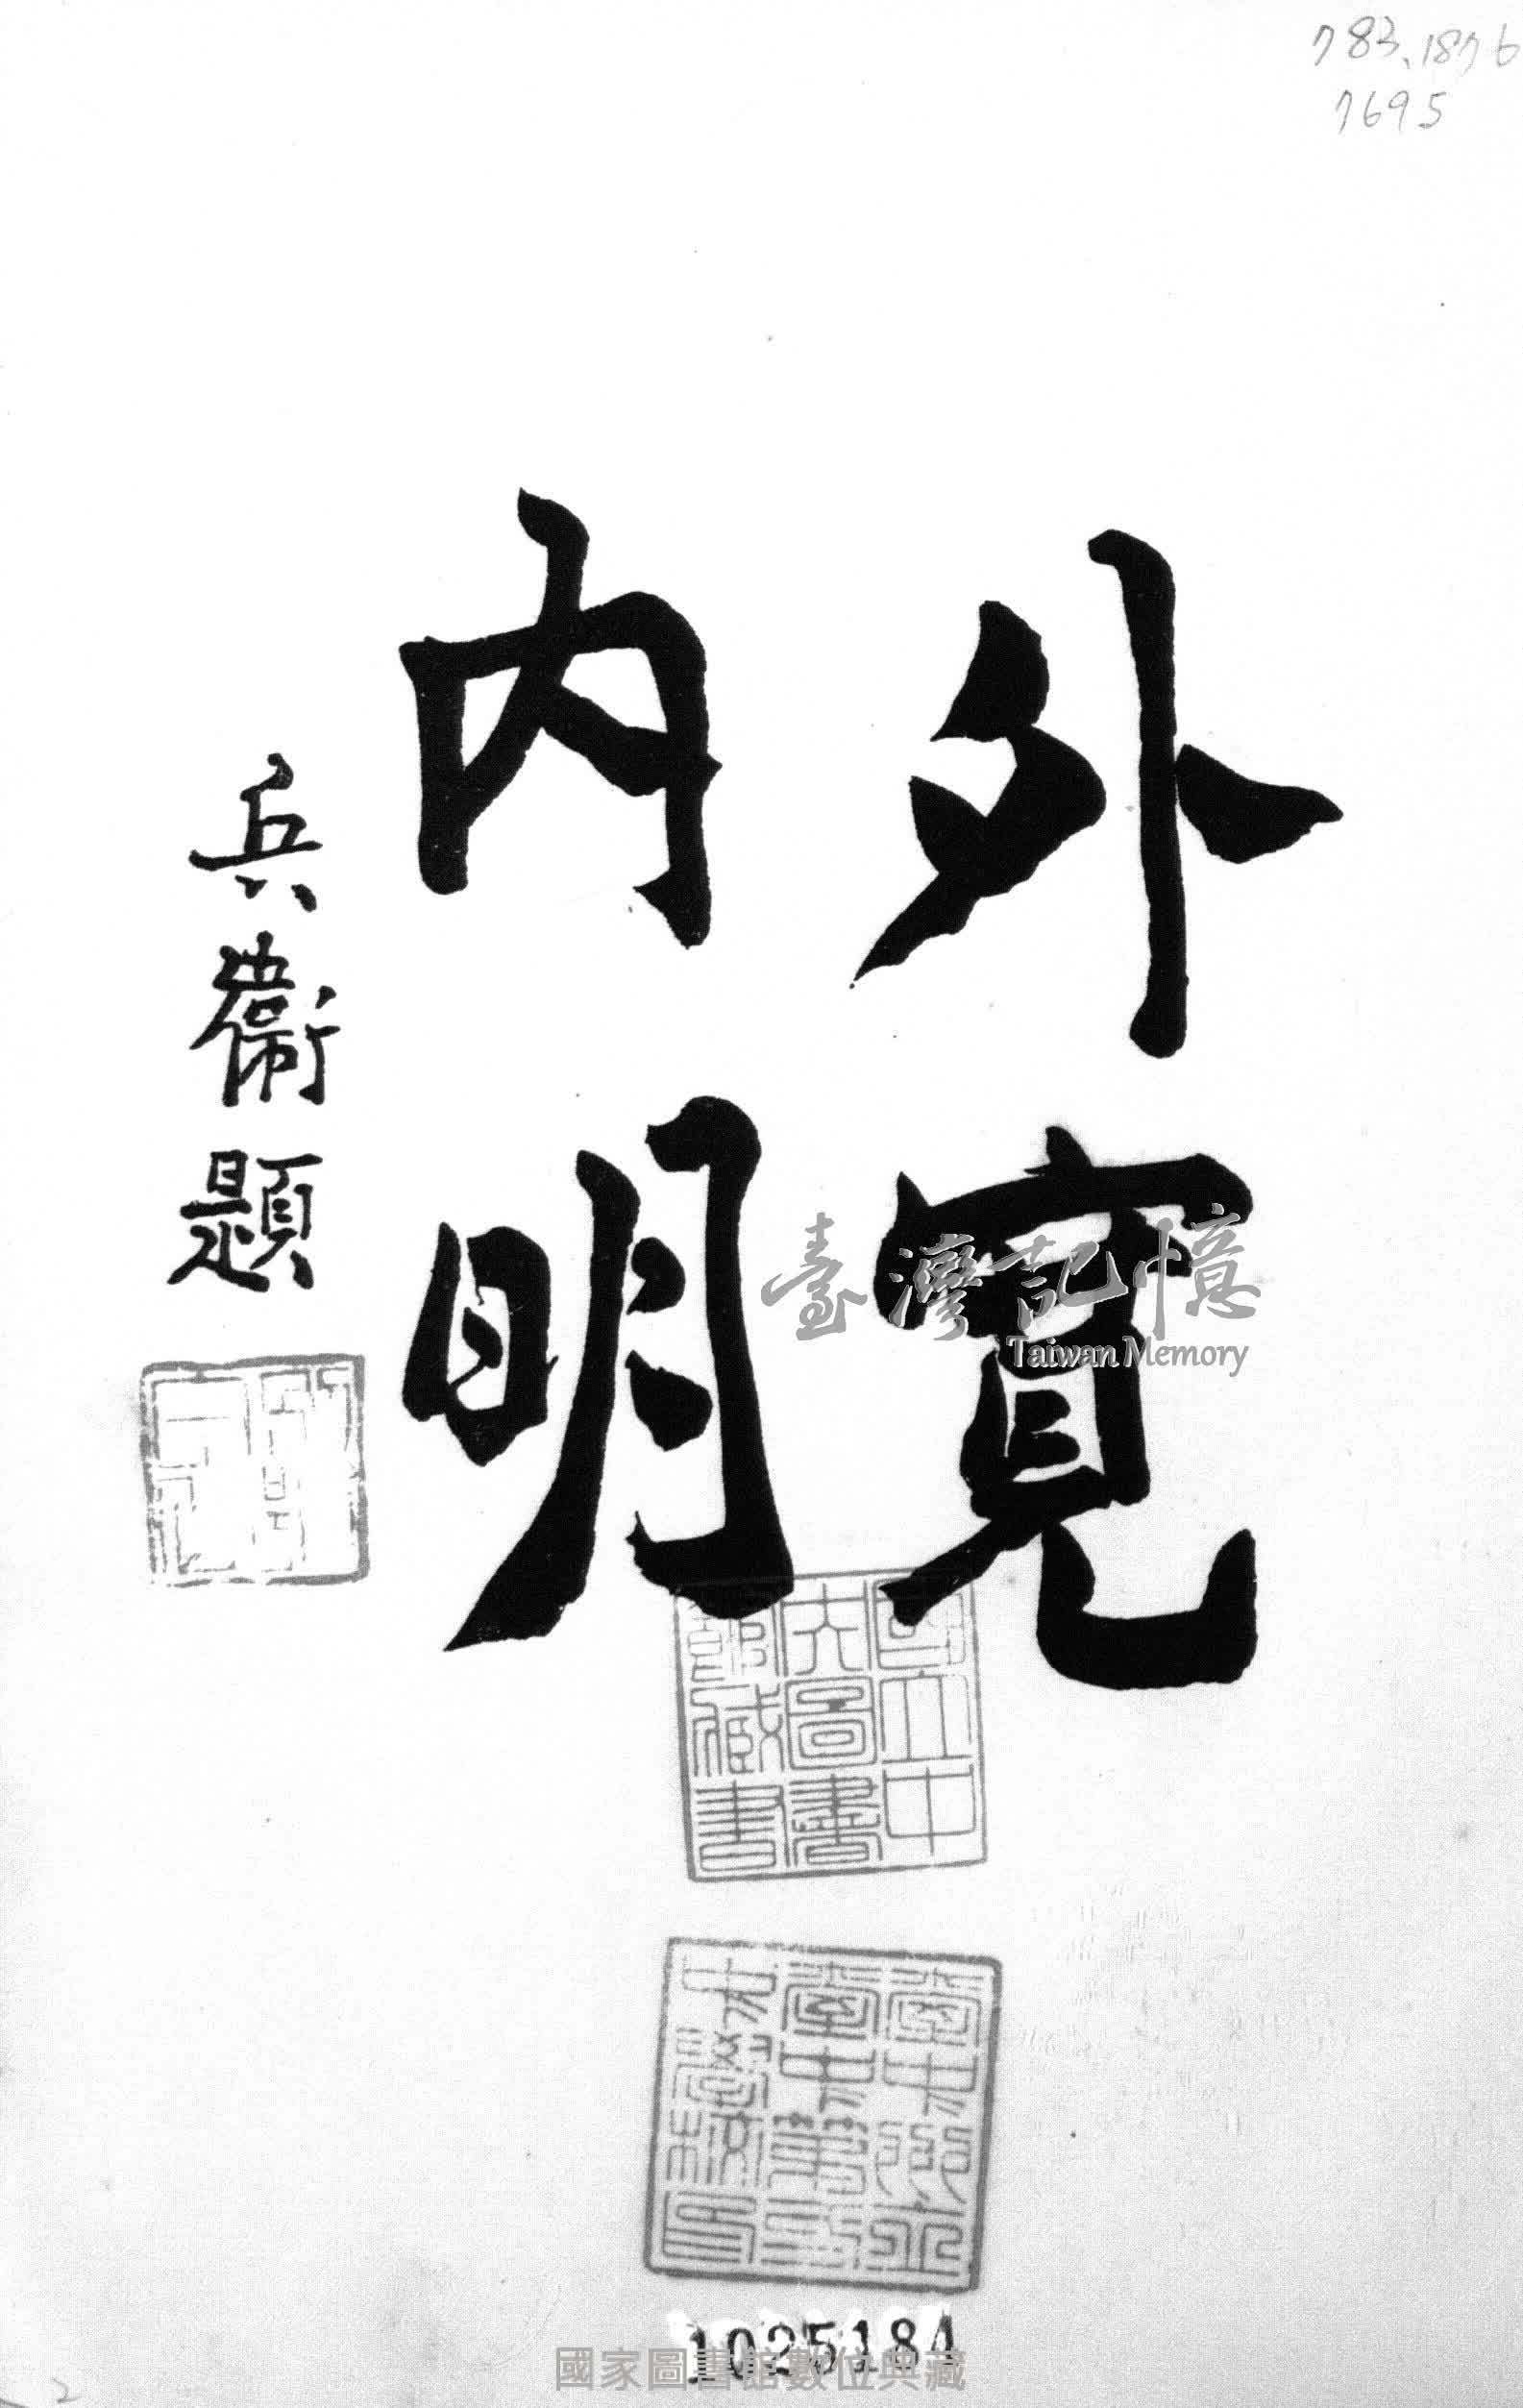 783.1876
7695
外寬
內明
兵衞題
臺灣記憶
Taiwan Memory
國立中
央圖書
館藏書
1025184
國家圖書館數位典藏
2